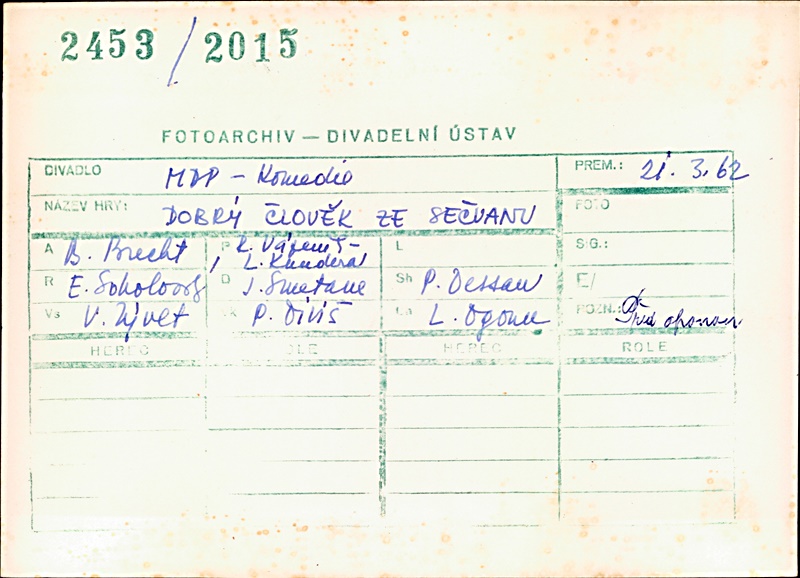 2453 / 2015
FOTOARCHIV — DIVADELNÍ ÚSTAV
DIVADLO MDP – Komedie PREM.: 21. 3. 62
NÁZEV HRY: DOBRÝ ČLOVĚK ZE SEČUANU FOTO
A B. Brecht P R. Vápeník – L. Kundera L SIG.:
R E. Sokolovský D J. Smetana Sh P. Dessau E/
Vs V. Nývlt P. Diviš L. Ogoun POZN.: Před oponou
HEREC ROLE HEREC ROLE